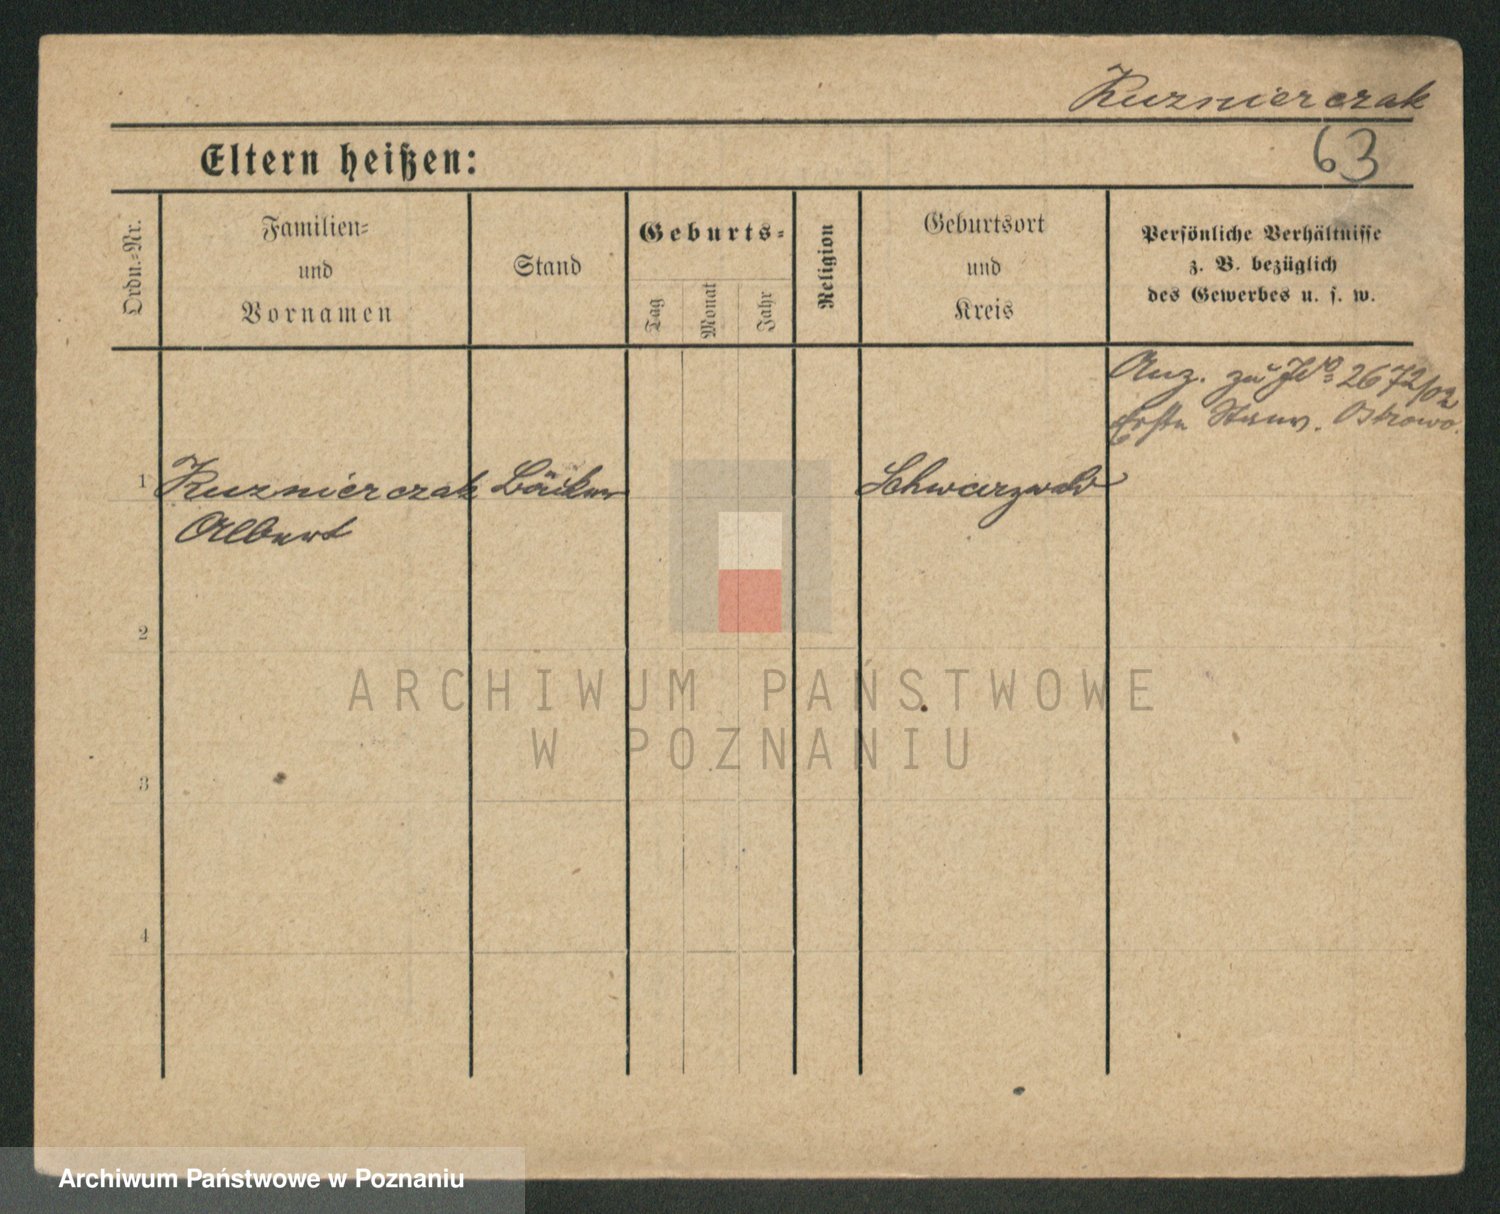 Kuznierczak
63
Eltern heißen:
Ordn.-Nr.
Familien-
und
Vornamen
Stand
Geburts-
Tag
Monat
Jahr
Religion
Geburtsort
und
Kreis
Persönliche Verhältnisse
z. B. bezüglich
des Gewerbes u. s. w.
Anz. zu No 2672/02
Erste Ostrowo.
1
Kuznierczak
Albert
Bäcker
Schwarzwald
2
3
4
ARCHIWUM PAŃSTWOWE
W POZNANIU
Archiwum Państwowe w Poznaniu